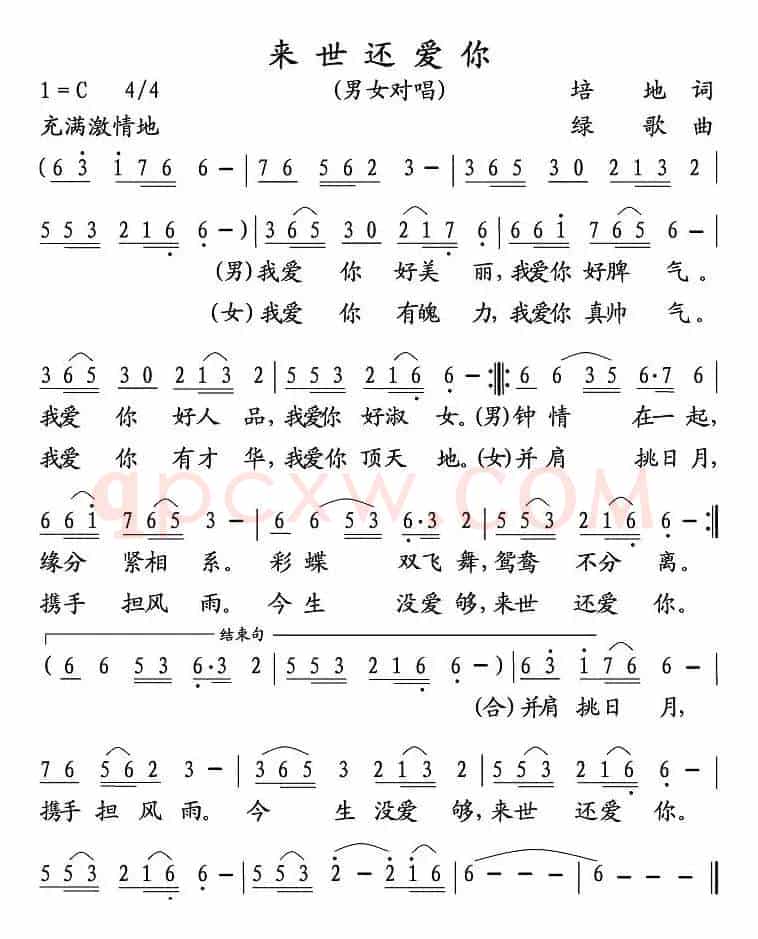 来世还爱你
1=C 4/4 (男女对唱) 培地词
充满激情地 绿歌曲
(6 3 1 7 6 6 - | 7 6 5 6 2 3 - | 3 6 5 3 0 2 1 3 2 |
5 5 3 2 1 6 6 - ) | 3 6 5 3 0 2 1 7 6 | 6 6 1 7 6 5 6 - |
(男)我爱你好美丽,我爱你好脾气。
(女)我爱你有魄力,我爱你真帅气。
3 6 5 3 0 2 1 3 2 | 5 5 3 2 1 6 6 - :||: 6 6 3 5 6·7 6 |
我爱你好人品,我爱你好淑女。(男)钟情在一起,
我爱你有才华,我爱你顶天地。(女)并肩挑日月,
6 6 1 7 6 5 3 - | 6 6 5 3 6·3 2 | 5 5 3 2 1 6 6 - :||
缘分紧相系。彩蝶双飞舞,鸳鸯不分离。
携手担风雨。今生没爱够,来世还爱你。
结束句
(6 6 5 3 6·3 2 | 5 5 3 2 1 6 6 - ) | 6 3 1 7 6 6 - |
(合)并肩挑日月,
7 6 5 6 2 3 - | 3 6 5 3 2 1 3 2 | 5 5 3 2 1 6 6 - |
携手担风雨。今生没爱够,来世还爱你。
5 5 3 2 1 6 6 - | 5 5 3 2 - 2 1 6 | 6 - - - | 6 - - - ||
qpcxw.COM